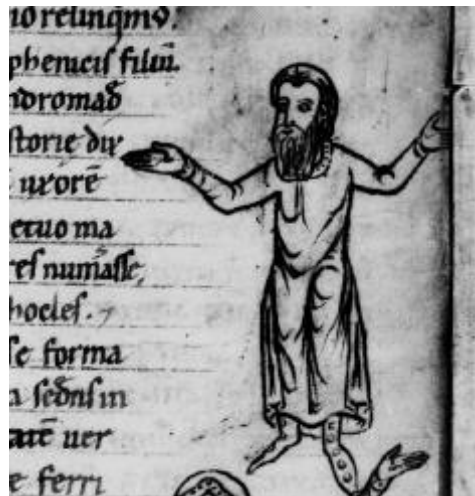 io relinqm9.
phenicis filiū.
ndromad̄
storie dix
uxorē
etuo ma
res numasse,
hocles.
se forma
a sed̄ns in
tatē uer
e ferri